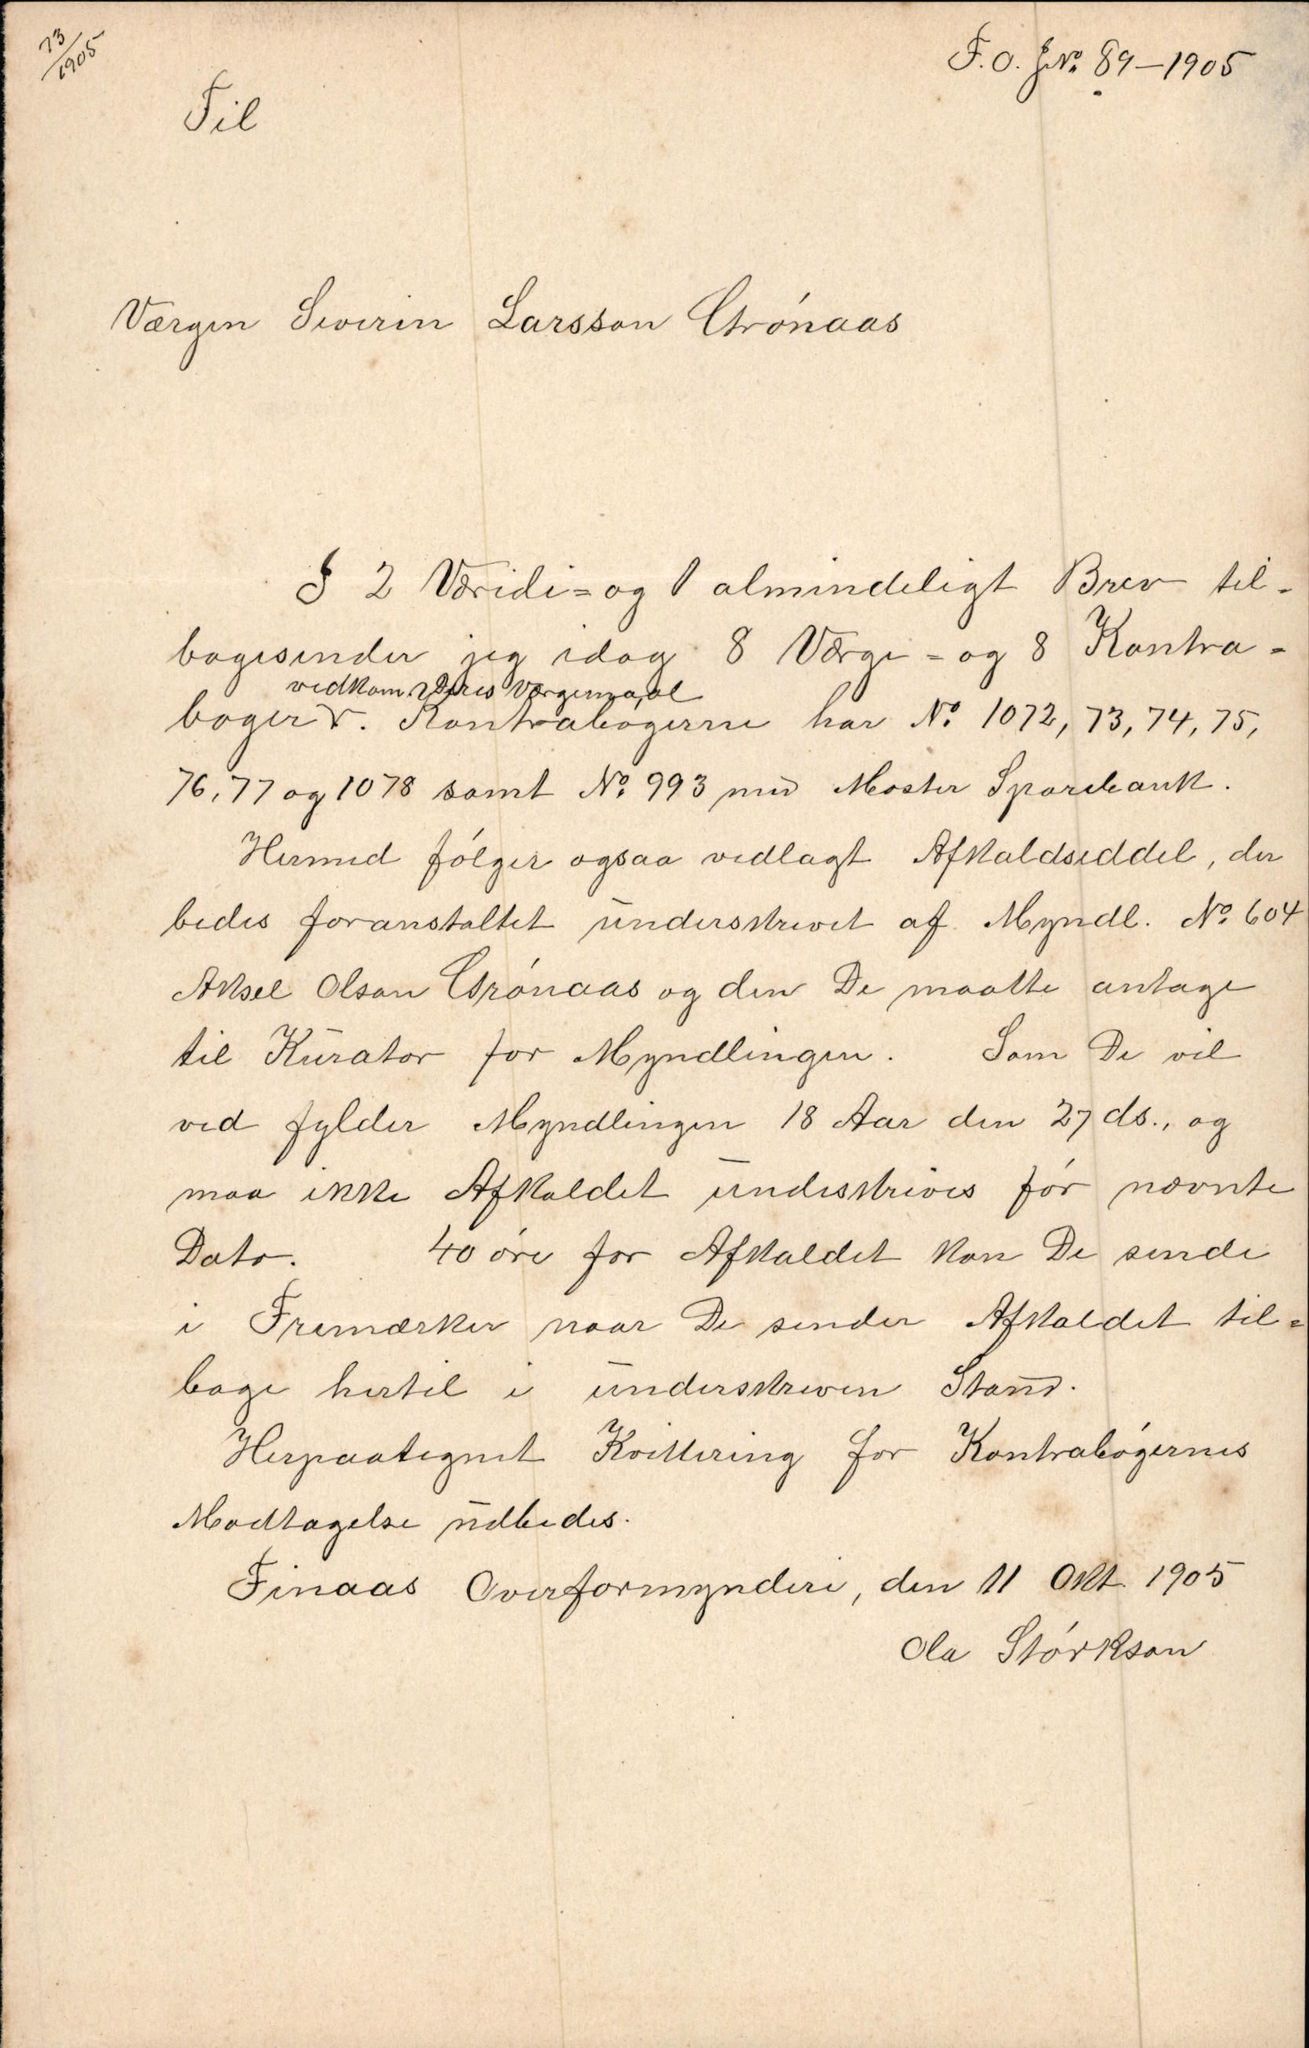 73/1905
F. O. JNo. 89–1905
Til
Værgen Severin Larsson Grönaas
I 2 Væridi= og 1 almindeligt Brev til-
bagesender jeg idag 8 Værge = og 8 Kontra-
vedkom. Deres Værgemaal
bøger. Kontrabogerne har No. 1072, 73, 74, 75,
76, 77 og 1078 samt No. 993 med Moster Sparebank.
Hermed fölger ogsaa vedlagt Afkaldseddel, der
bedes foranstaltet underskrevet af Myndl. No. 604
Aksel Olson Grönaas og den De maatte antage
til Kurator for Myndlingen. Som De vil
ved fylder Myndlingen 18 Aar den 27 ds., og
maa ikke Afkaldet undeskrives för nævnte
Dato. 40 öre for Afkaldet kan De sende
i Fremærker naar De sender Afkaldet til=
bage hertil i underskreven Stand.
Herpaategnet Kvittering for Kontrabögernes
Modtagelse udbedes.
Finaas Overformynderi, den 11 Okt. 1905
Ola Störkson